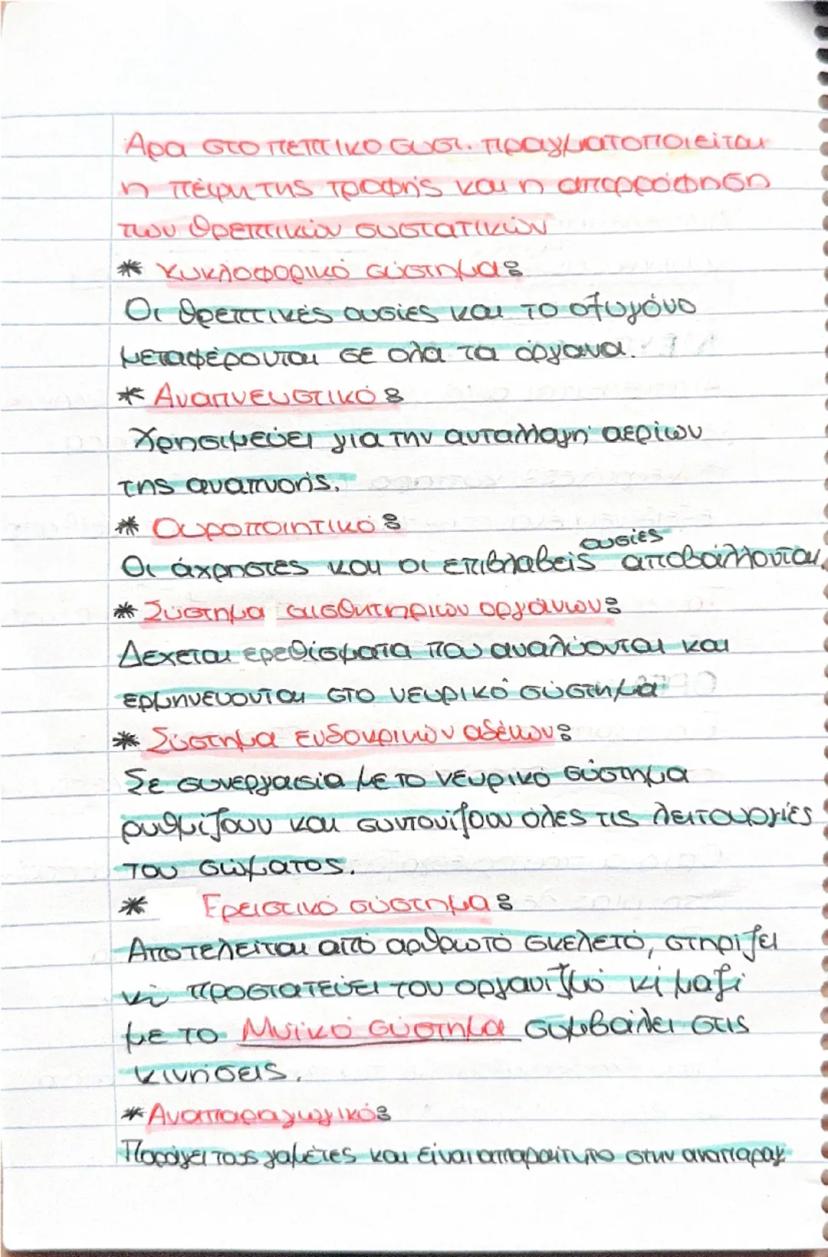 Αρα στο πεπτικο συστ. πραγματοποιείται
η πέψη της τροφής και η απορρόφηση
των θρεπτικών συστατικών
* κυκλοφορικό σύστημα:
Οι θρεπτικές ουσίες και το οξυγόνο
μεταφέρονται σε ολα τα όργανα.
* Αναπνευστικό:
Χρησιμεύει για την ανταλλαγη αερίων
της αναπνοής.
* Ουροποιητικό:
Οι άχρηστες και οι επιβλαβείς ουσίες αποβάλλονται
* Σύστημα αισθητηρίων οργάνων:
Δεχεται ερεθίσματα που αναλύονται και
ερμηνευονται στο νευρικό σύστημα
* Σύστημα ενδοκρικών αδένων:
Σε συνεργασία με το νευρικό σύστημα
ρυθμίζουν και συντονίζουν όλες τις λειτουργίες
του σώματος.
* Ερειστικό σύστημα:
Αποτελείται από αρθρωτό σκελετό, στηρίζει
κι προστατεύει τον οργανιζμό κι μαζί
με το Μυϊκό σύστημα συμβάλει στις
κινήσεις.
* Αναπαραγωγικό:
Παράγει τους γαμέτες και είναι απαραίτητο στην αναπαραγ